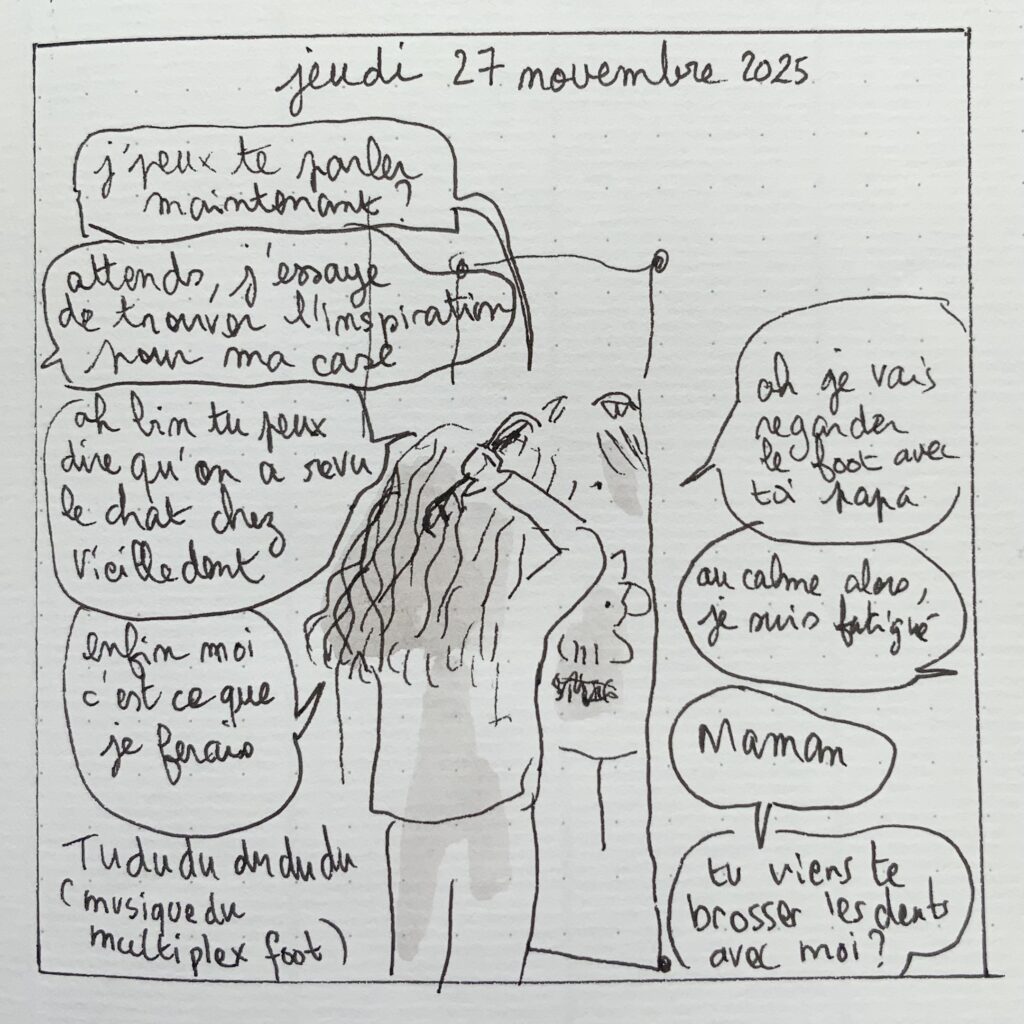 jeudi 27 novembre 2025
j'peux te parler
maintenant ?
attends, j'essaye
de trouver l'inspiration
pour ma case
ah bin tu peux
dire qu'on a revu
le chat chez
Vieilledent
enfin moi
c'est ce que
je ferais
Tududu dududu
(musique du
multiplex foot)
ah je vais
regarder
le foot avec
toi papa
au calme alors,
je suis fatigué
Maman
tu viens te
brosser les dents
avec moi ?